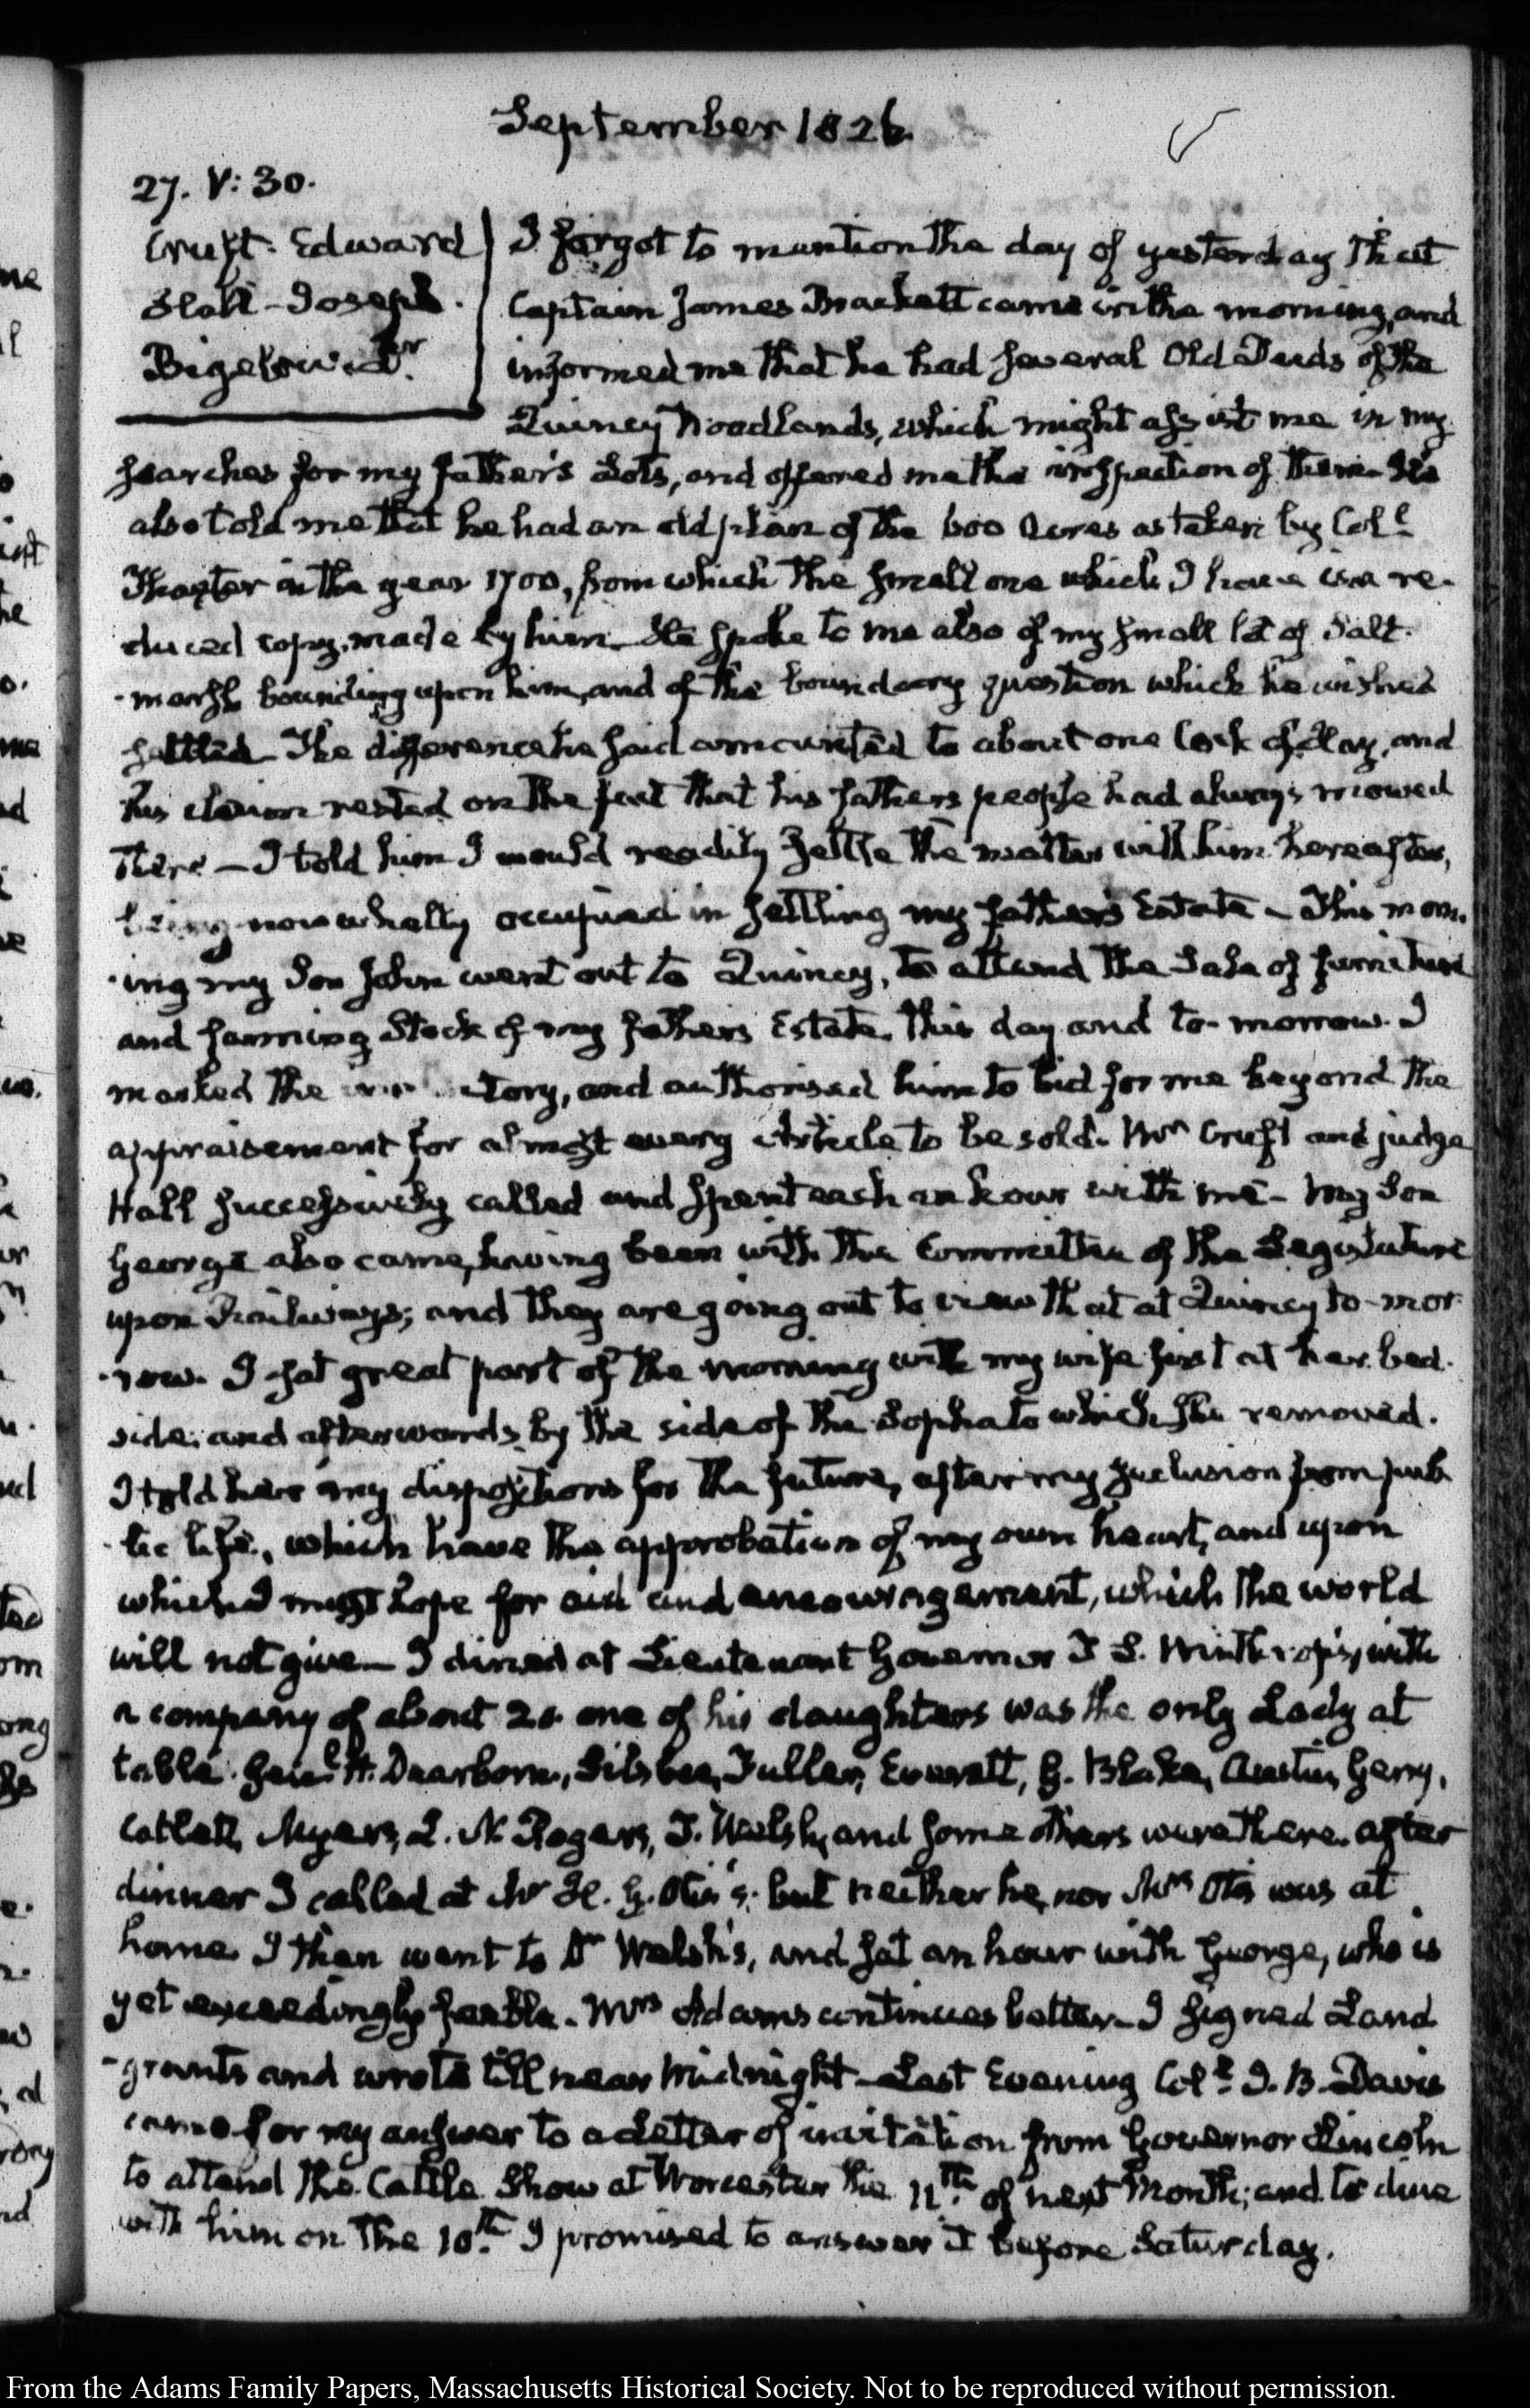 September 1826.
27. V: 30.
Cruft. Edward
Hall - Joseph.
Bigelow. Dr.
I forgot to mention the day of yesterday that
Captain James Brackett came in the morning, and
informed me that he had several Old Deeds of the
Quincy Woodlands, which might assist me in my
searches for my father's Lots, and offered me the inspection of them. He
also told me that he had an old plan of the 600 Acres as taken by Coll.
Thaxter in the year 1700, from which the small one which I have is a re-
duced copy, made by him. He spoke to me also of my small lot of Salt-
-marsh bounding upon him, and of the boundary question which he wished
settled. The difference he said amounted to about one Cock of Hay, and
his claim rested on the fact that his father's people had always mowed
there — I told him I would readily settle the matter with him hereafter,
being now wholly occupied in settling my father's Estate — This morn-
-ing my Son John went out to Quincy, to attend the Sale of furniture
and farming Stock of my fathers Estate, this day and to-morrow. I
marked the and authorised him to bid for me beyond the
appraisement for almost every article to be sold. Mr Cruft and judge
Hall successively called and spent each an hour with me — My Son
George also came, having been with the Committee of the Legislature
upon Railways; and they are going out to view that at Quincy to-mor-
-row. I sat great part of the morning with my wife first at her bed-
side, and afterwards by the side of the Sopha to which she removed.
I told her my dispositions for the future, after my seclusion from pub-
-lic life, which have the approbation of my own heart, and upon
which I must hope for aid and encouragement, which the world
will not give — I dined at Lieutenant Governor T L. Winthrop's, with
a company of about 20. one of his daughters was the only Lady at
table. Genl. H. Dearborn, Silsbee, Fuller, Everett, G. Blake, Austin, Gerry,
Catlett, Myers, D. N. Rogers, T. Welsh, and some others were there. after
dinner I called at Mr H. G. Otis's; but neither he, nor Mrs Otis was at
home. I then went to Dr Welsh's, and sat an hour with George, who is
yet exceedingly feeble. Mrs Adams continues better. I signed Land
-grants and wrote till near Midnight — Last Evening Coll. I. B. Davis
came for my answer to a Letter of invitation from Governor Lincoln
to attend the Cattle Show at Worcester the 11th. of next Month; and to dine
with him on the 10th. I promised to answer it before Saturday.
From the Adams Family Papers, Massachusetts Historical Society. Not to be reproduced without permission.